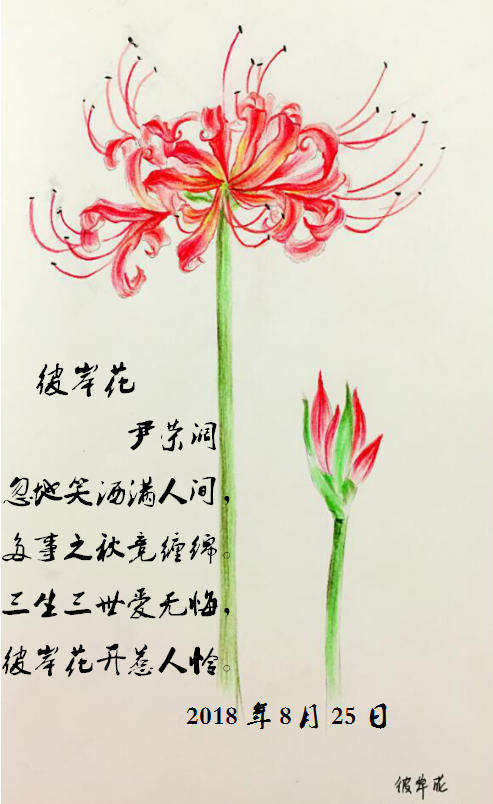 彼岸花
尹荣润
忽地笑洒满人间，
多事之秋竟缠绵。
三生三世爱无悔，
彼岸花开惹人怜。
2018年8月25日
彼岸花